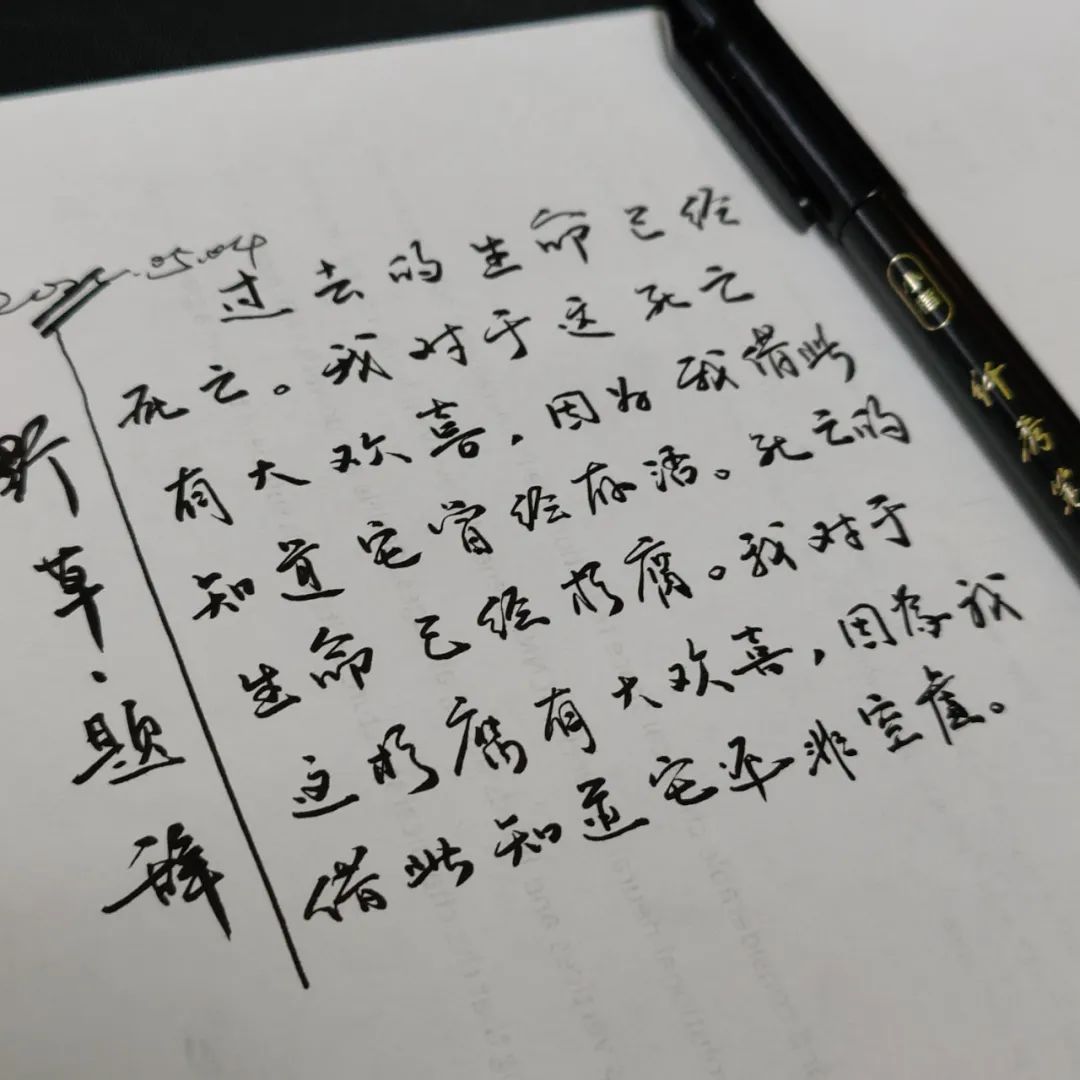 .05.04
过去的生命已经
死亡。我对于这死亡
有大欢喜，因为我借此
知道它曾经存活。死亡的
生命已经朽腐。我对于
这朽腐有大欢喜，因为我
借此知道它还非空虚。
野草·题辞